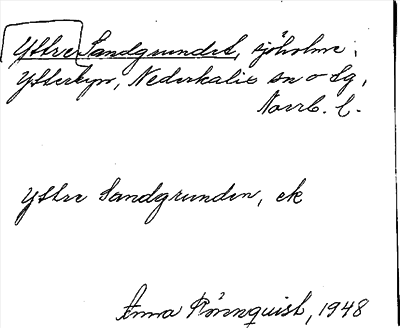 Yttre Sandgrundet, sjöholme;
Ytterbyn, Nederkalix sn o tg,
Norrb. l.
Yttre Sandgrunden, ek
Anna Rönnquist, 1948